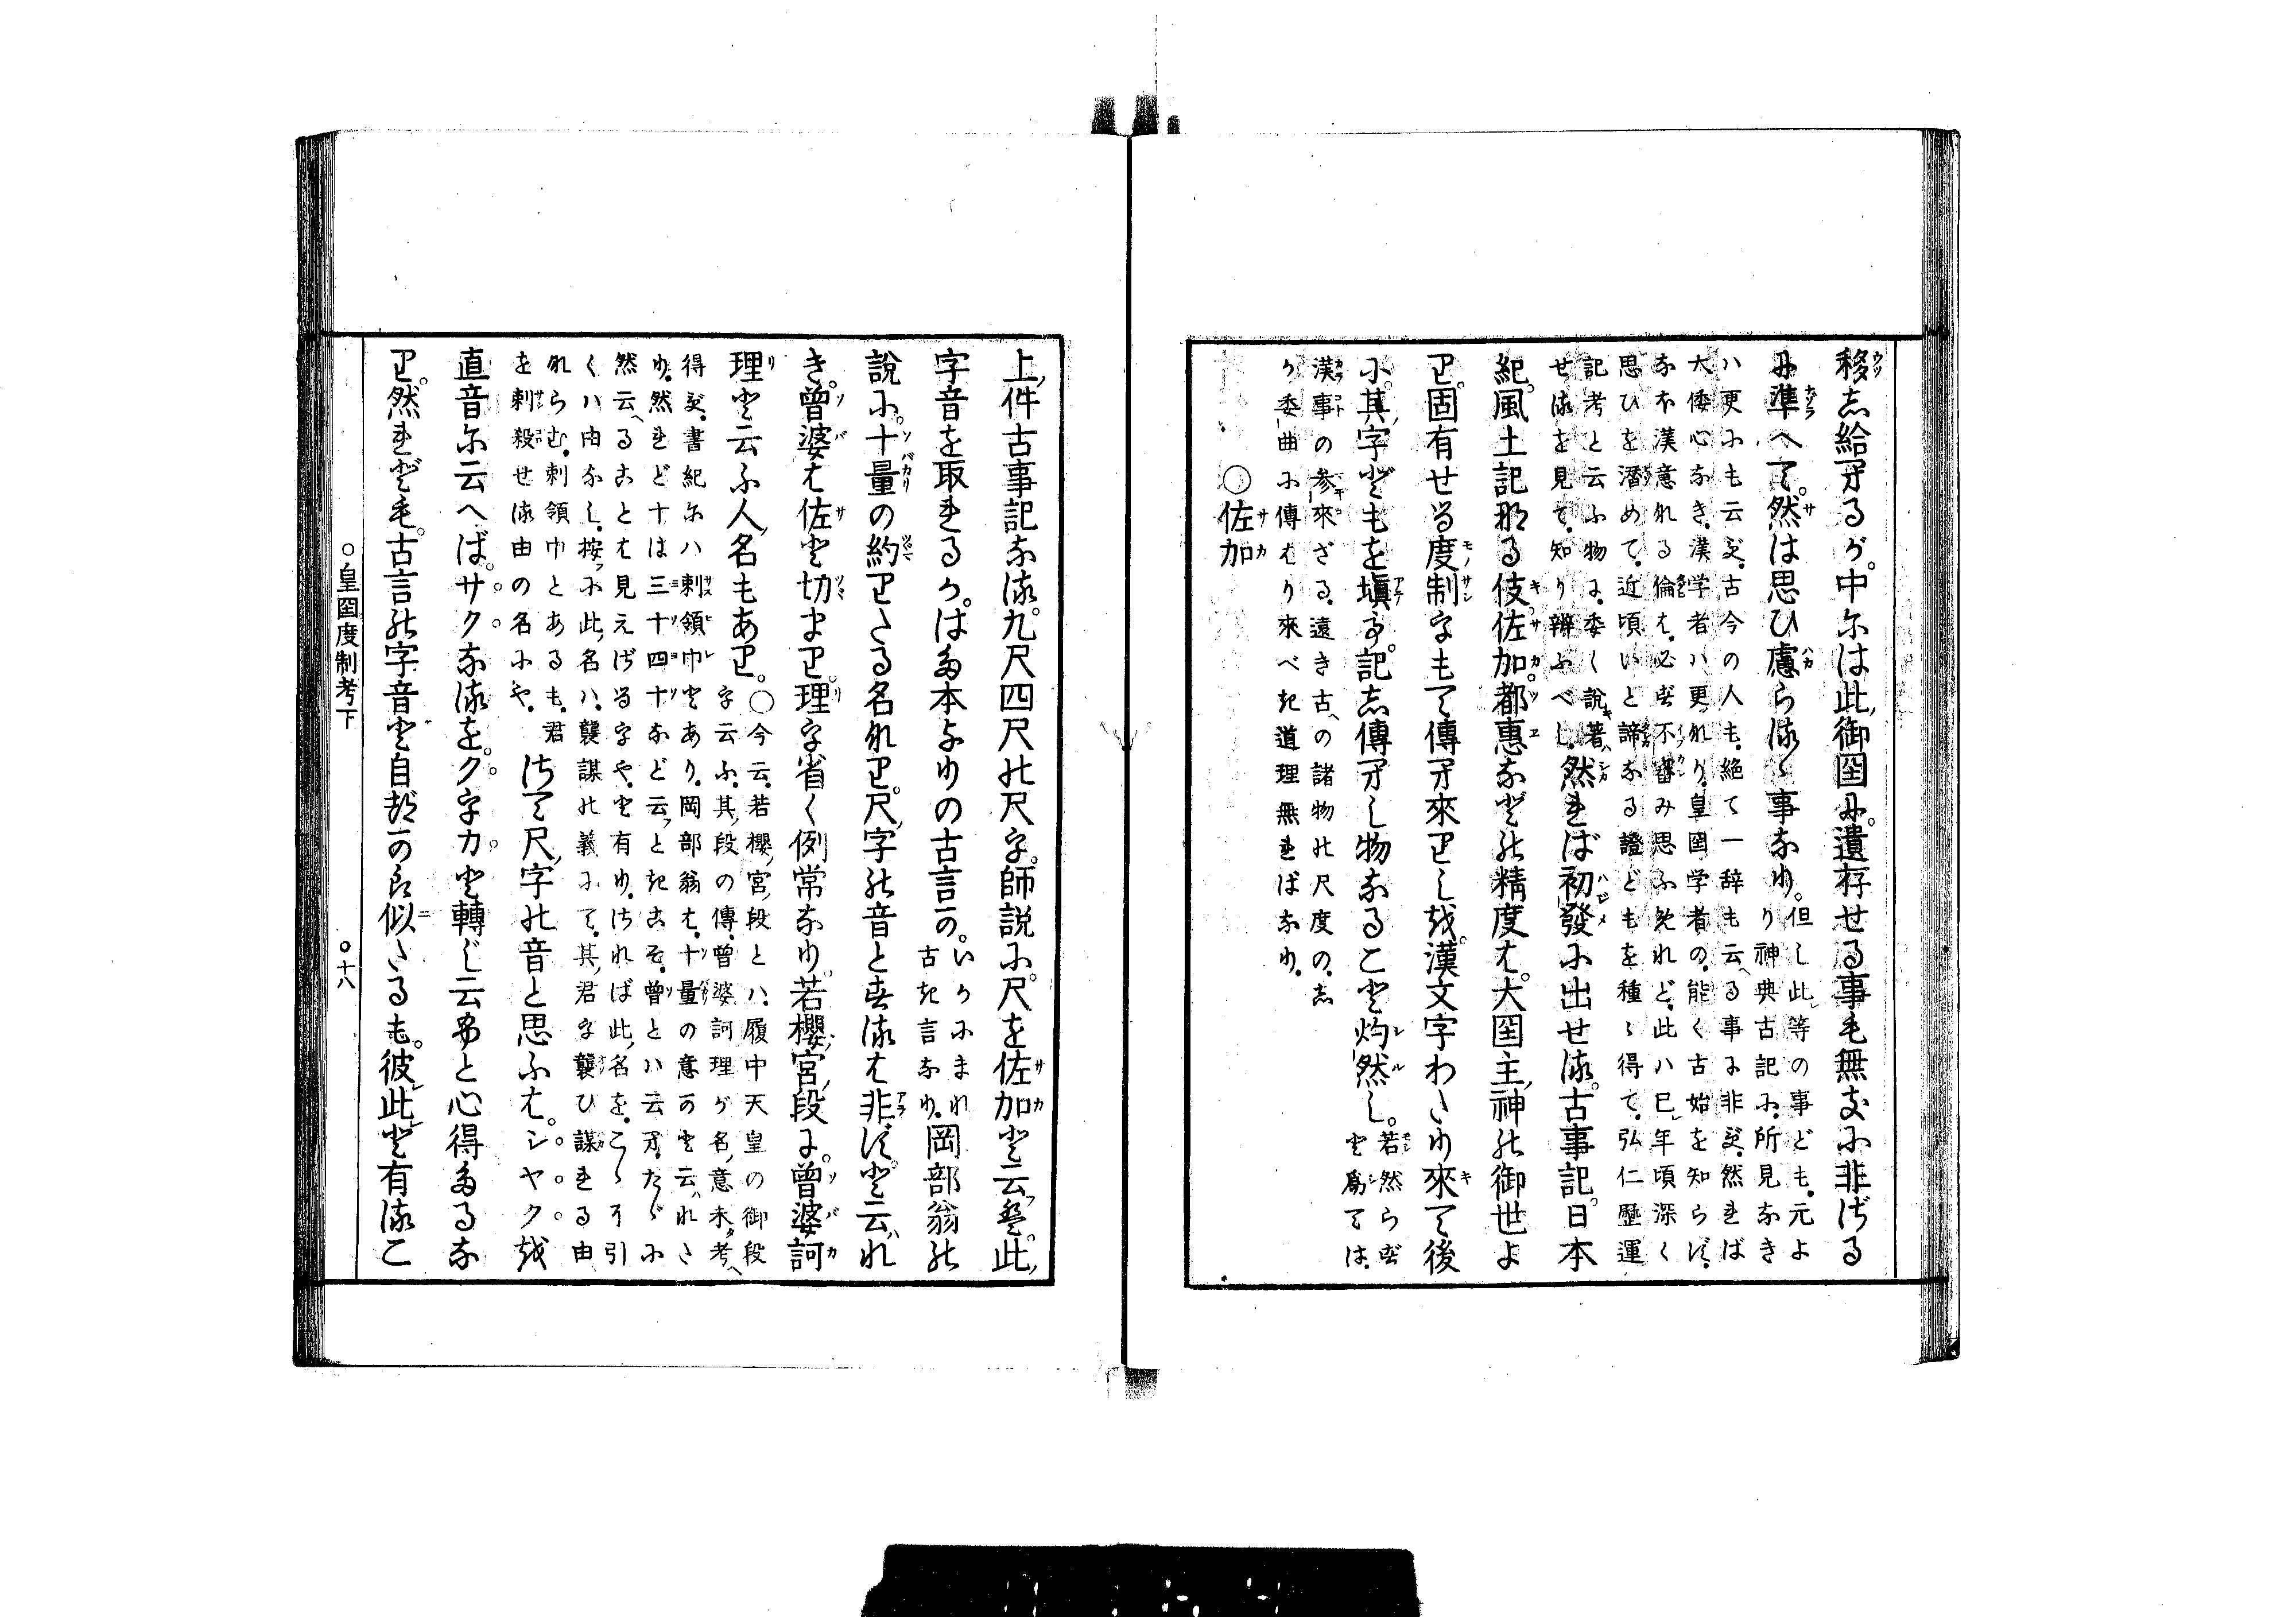 移し給へるが。中には此御国に。遺存せる事も無きに非ざる
に準へて。然は思ひ慮らるゝ事なり。
但し此等の事ども。元よ
り神典古記に。所見なき
ハ更にも云ず。古今の人も。絶て一辞も云る事に非ず。然れば
大倭心なき。漢学者ハ更なり。皇国学者の。能く古始を知らず。
なほ漢意なる倫は。必ず不審み思ふめれど。此ハ巳年頃深く
思ひを潜めて。近頃いと諦なる證どもを種ゝ得て。弘仁歴運
記考と云ふ物に。委く説著
せるを見て。知り辨ふべし。
然れば初発に出せる。古事記。日本
紀。風土記なる伎佐加都恵などの精度は。大国主神の御世よ
り。固有せる度制にもて傳へ来りしを。漢文字わたり来て後
に。其字どもを塡て。記し傳へし物なること灼然し。
若然らず
と為ては。
漢事の参来ざる。遠き古への諸物の尺度の。し
か委曲に傳はり来べき道理無ればなり。
○佐加
上件古事記なる。九尺四尺の尺字。師説に。尺を佐加と云は。此
字音を取れるかはた本よりの古言か。
いかにまれ
古き言なり。
岡部翁の
説に。十量の約りたる名なり。尺字の音とするは非ずと云れ
き。曾婆は佐と切まり。理字省く例常なり。若櫻宮段に。曾婆訶
理と云ふ人名もあり。
○今云。若櫻宮段とハ。履中天皇の御段
字云ふ。其段の傳。曾婆訶理が名意未考へ
得ず。書紀にハ刺領巾とあり。岡部翁は。十量の意かと云れさ
り。然れど十は三十四十など云ときこそ。曾とハ云へ。たゞに
然云へることは見えざる字や。と有り。されば此名を。こゝに引
くハ由なし。按に此名ハ。襲謀の義にて。其君字襲ひ謀れる由
ならむ。刺領巾とあるも。君
を刺殺せる由の名にや。
さて尺字の音と思ふは。シヤクを
直音に云へば。サクなるを。ク字カと轉じ云ふと心得たるな
り。然れども。古言の字音と自然の良似たるも。彼此と有るこ
○皇国度制考下
○十八